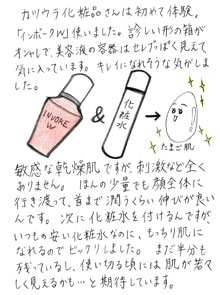 カツウラ化粧品さんは初めて体験。
「インボークW」使いました。診しい形の箱が
オシャレで、美容液の容器はセレブっぽく見えて
気に入っています。キレイになれそうな気がしま
した。
INVOKE
W
&
化粧水
たまご肌
敏感な乾燥肌ですが、刺激など全く
ありません。ほんの少量でも顔全体に
行き渡って、直まで潤うくらい伸びが良い
んです。次に化粧水を付けるんですが
いつもの安い化粧水なのに、もっちり肌に
なれるのでビックリしました。まだ半分も
残っているし、使い切る頃には肌が若々
しく見えるかも…と期待しています。